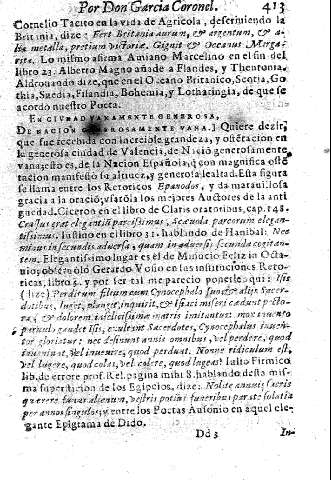 Por Don Garcia Coronel. 413
Cornelio Tacito en la vida de Agricola, descriuiendo la
Britania, dize: Fert Britania aurum, & argentum, & a-
lia metalla, pretium victoriæ. Gignit & Oceanus Marga-
rita. Lo mismo afirma Amiano Marcelino en el fin del
libro 23. Alberto Magno añade a Flandes, y Theutonia.
Aldrouando dize, que en el Oceano Britanico, Scotia, Go
thia, Suedia, Filandia, Bohemia, y Lotharingia, de que se
acordò nuestro Poeta.
EN CIVDAD VANAMENTE GENEROSA,
DE NACION GENEROSAMENTE VANA.] Quiere dezir,
que fue recebida con increible grandeza, y ostētacion en
la generosa ciudad de Valencia, de Naciō generosamente
vana, esto es, de la Nacion Española, q̃ con magnifica ostē
tacion manifestò su altiuez, y generosa lealtad. Esta figura
se llama entre los Retoricos Epanodos, y da marauillosa
gracia a la oracion, vsarōla los mejores Auctores de la anti
guedad. Ciceron en el libro de Claris oratoribus, cap. 148.
Crassus erat elegantiū parcissimus, Scæuola parcorum elegan-
tissimus. Iustino en el libro 31. hablando de Hanibal: Nec
minus in secundis aduersa, quam in aduersis secunda cogitan-
tem. Elegantissimo lugar es el de Minucio Feliz in Octa-
uio, obseruòlo Gerardo Vosio en las instituciones Reto-
ricas, libro 5. y por ser tal me parecio ponerle aqui: Isis
(dize) Perditum filium cum Cynocephalo suo, & caluis Sacer-
dotibus, luget, plangit, inquirit, & Isiaci miseri cædunt pecto-
ra, & dolorem infelicissimæ matris imitantur: mox inuento
paruulo gaudet Isis, exultant Sacerdotes, Cynocephalus inuen-
tor gloriatur: nec desinunt annis omnibus, vel perdere, quod
inueniunt, vel inuenire, quod perdunt. Nonne ridiculum est,
vel lugere, quod colas, vel colere, quod lugeas? Iulio Firmico
lib. de errore prof. Rel. pagina mihi 8. hablando desta mis-
ma supersticion de los Egipcios, dize: Nolite annuis sacris
quærere funera alienum, vestris potius funeribus parate solatia
per annos singulos; y entre los Poetas Ausonio en aquel ele-
gante Epigrama de Dido.
Dd 3 In-